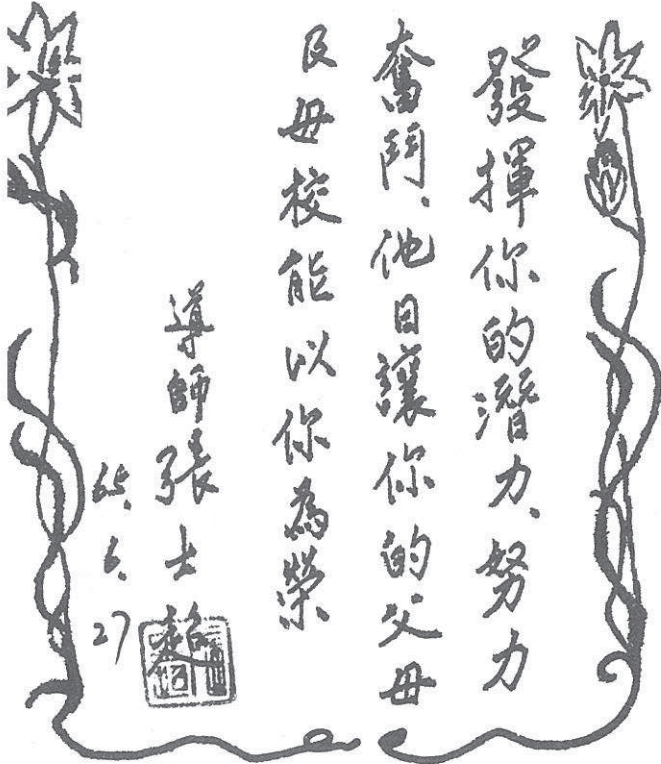 發揮你的潛力、努力
奮鬥、他日讓你的父母
及母校能以你為榮
導師張士超
65.6.27